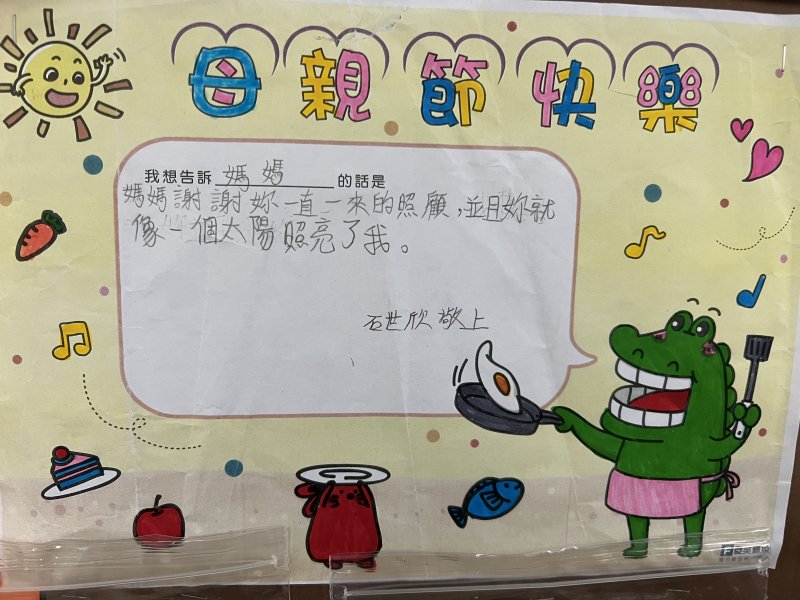 母親節快樂
我想告訴 媽媽 的話是
媽媽謝謝妳一直一來的照顧,並且妳就
像一個太陽照亮了我。
石世欣敬上